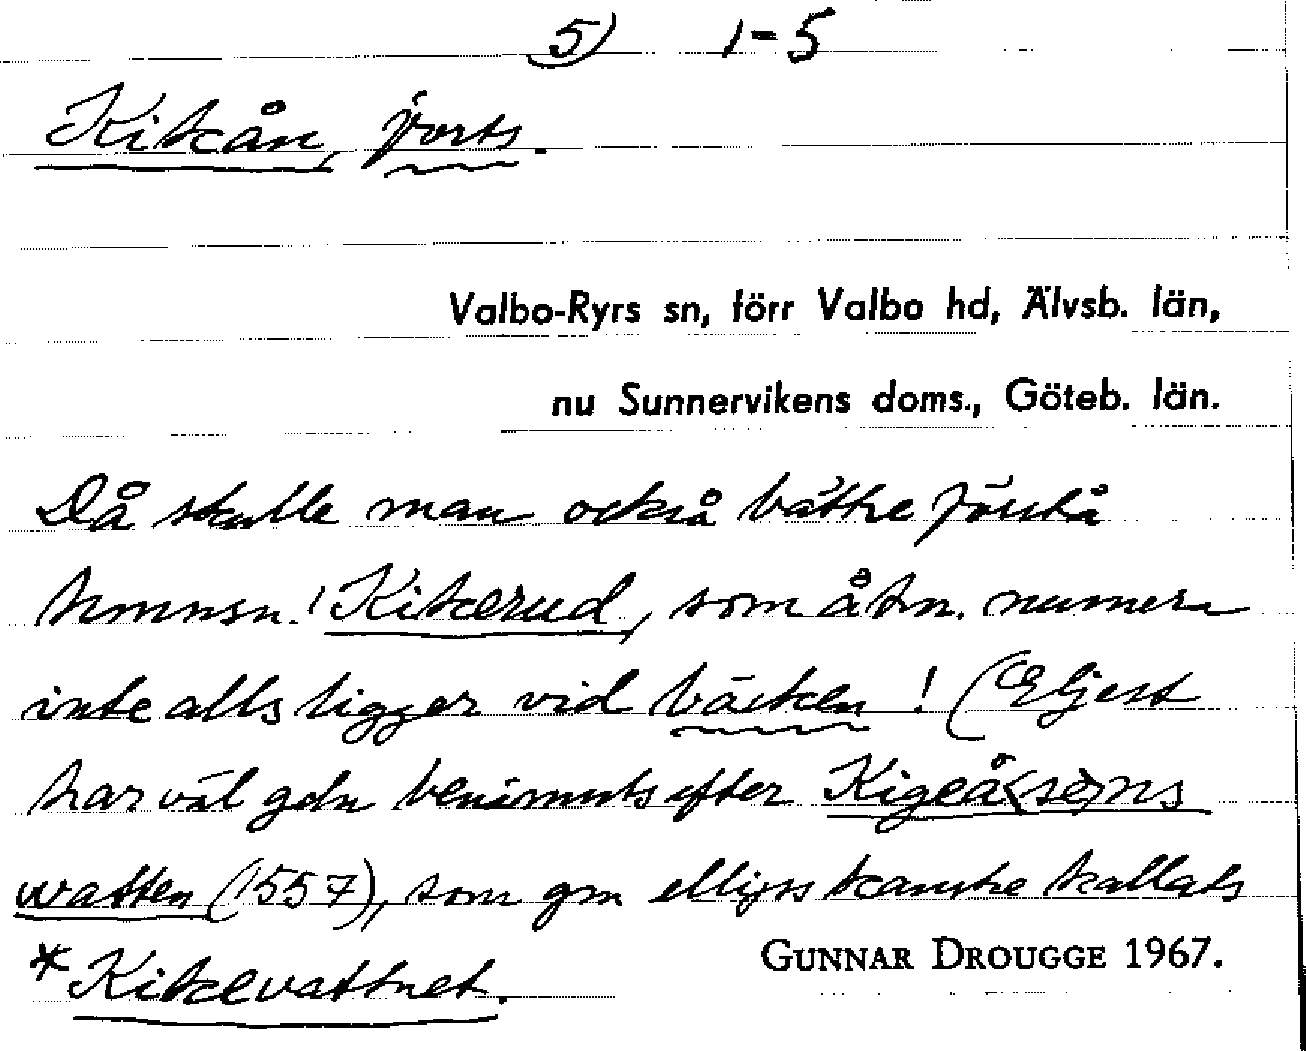 5) 1-5
Kikån, forts.
Valbo-Ryrs sn, förr Valbo hd, Älvsb. län,
nu Sunnervikens doms., Göteb. län.
Då skulle man också bättre förstå
hmnsn. Kikerud, som åtm. numera
inte alls ligger vid bäcken! (Eljest
har väl gdn benämnts efter Kigeå<se>ns
watten (1557), som gm ellips kanske kallats
*Kikevattnet.
GUNNAR DROUGGE 1967.